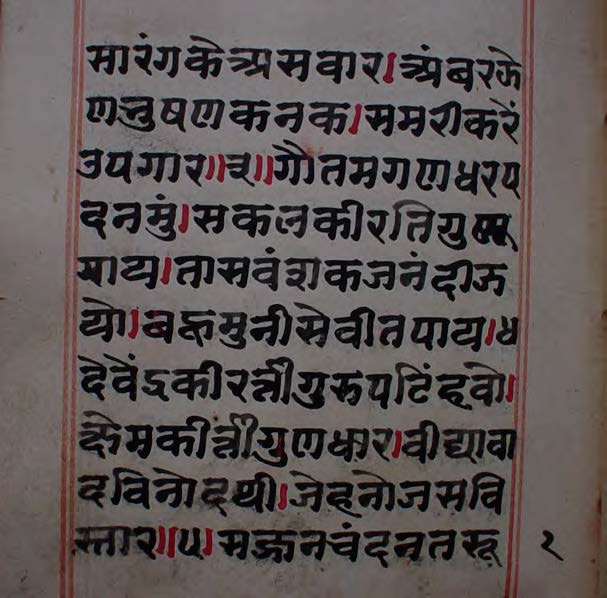 सारंगकेअसवार।अंबरके
णभुषणकनक।समरीकरें
उपगार॥३॥गौतमगणधरप
दनमुं।सकलकीरतिगुण
पाय।तासवंशकजनंदीऊ
यो।बहुमुनीसेवीतपाय।४
देवेंद्रकीरत्तीगुरुपटिंहवो।
क्षेमकीर्त्तीगुणधार।वीद्यावा
दविनोदथी।जेहनोजसवि
स्तार॥५।सज्जनचंदनतरू २